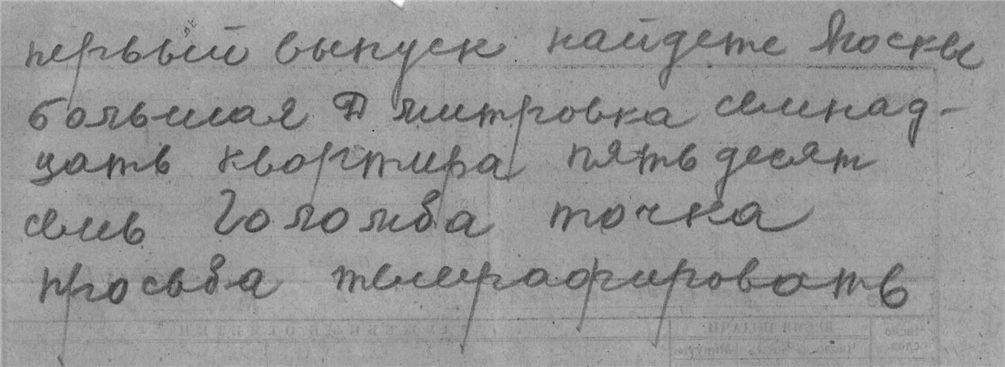 первый выпуск найдете Москве
большая Дмитровка семнад-
цать квартира пятьдесят
семь Голомба точка
просьба телеграфировать